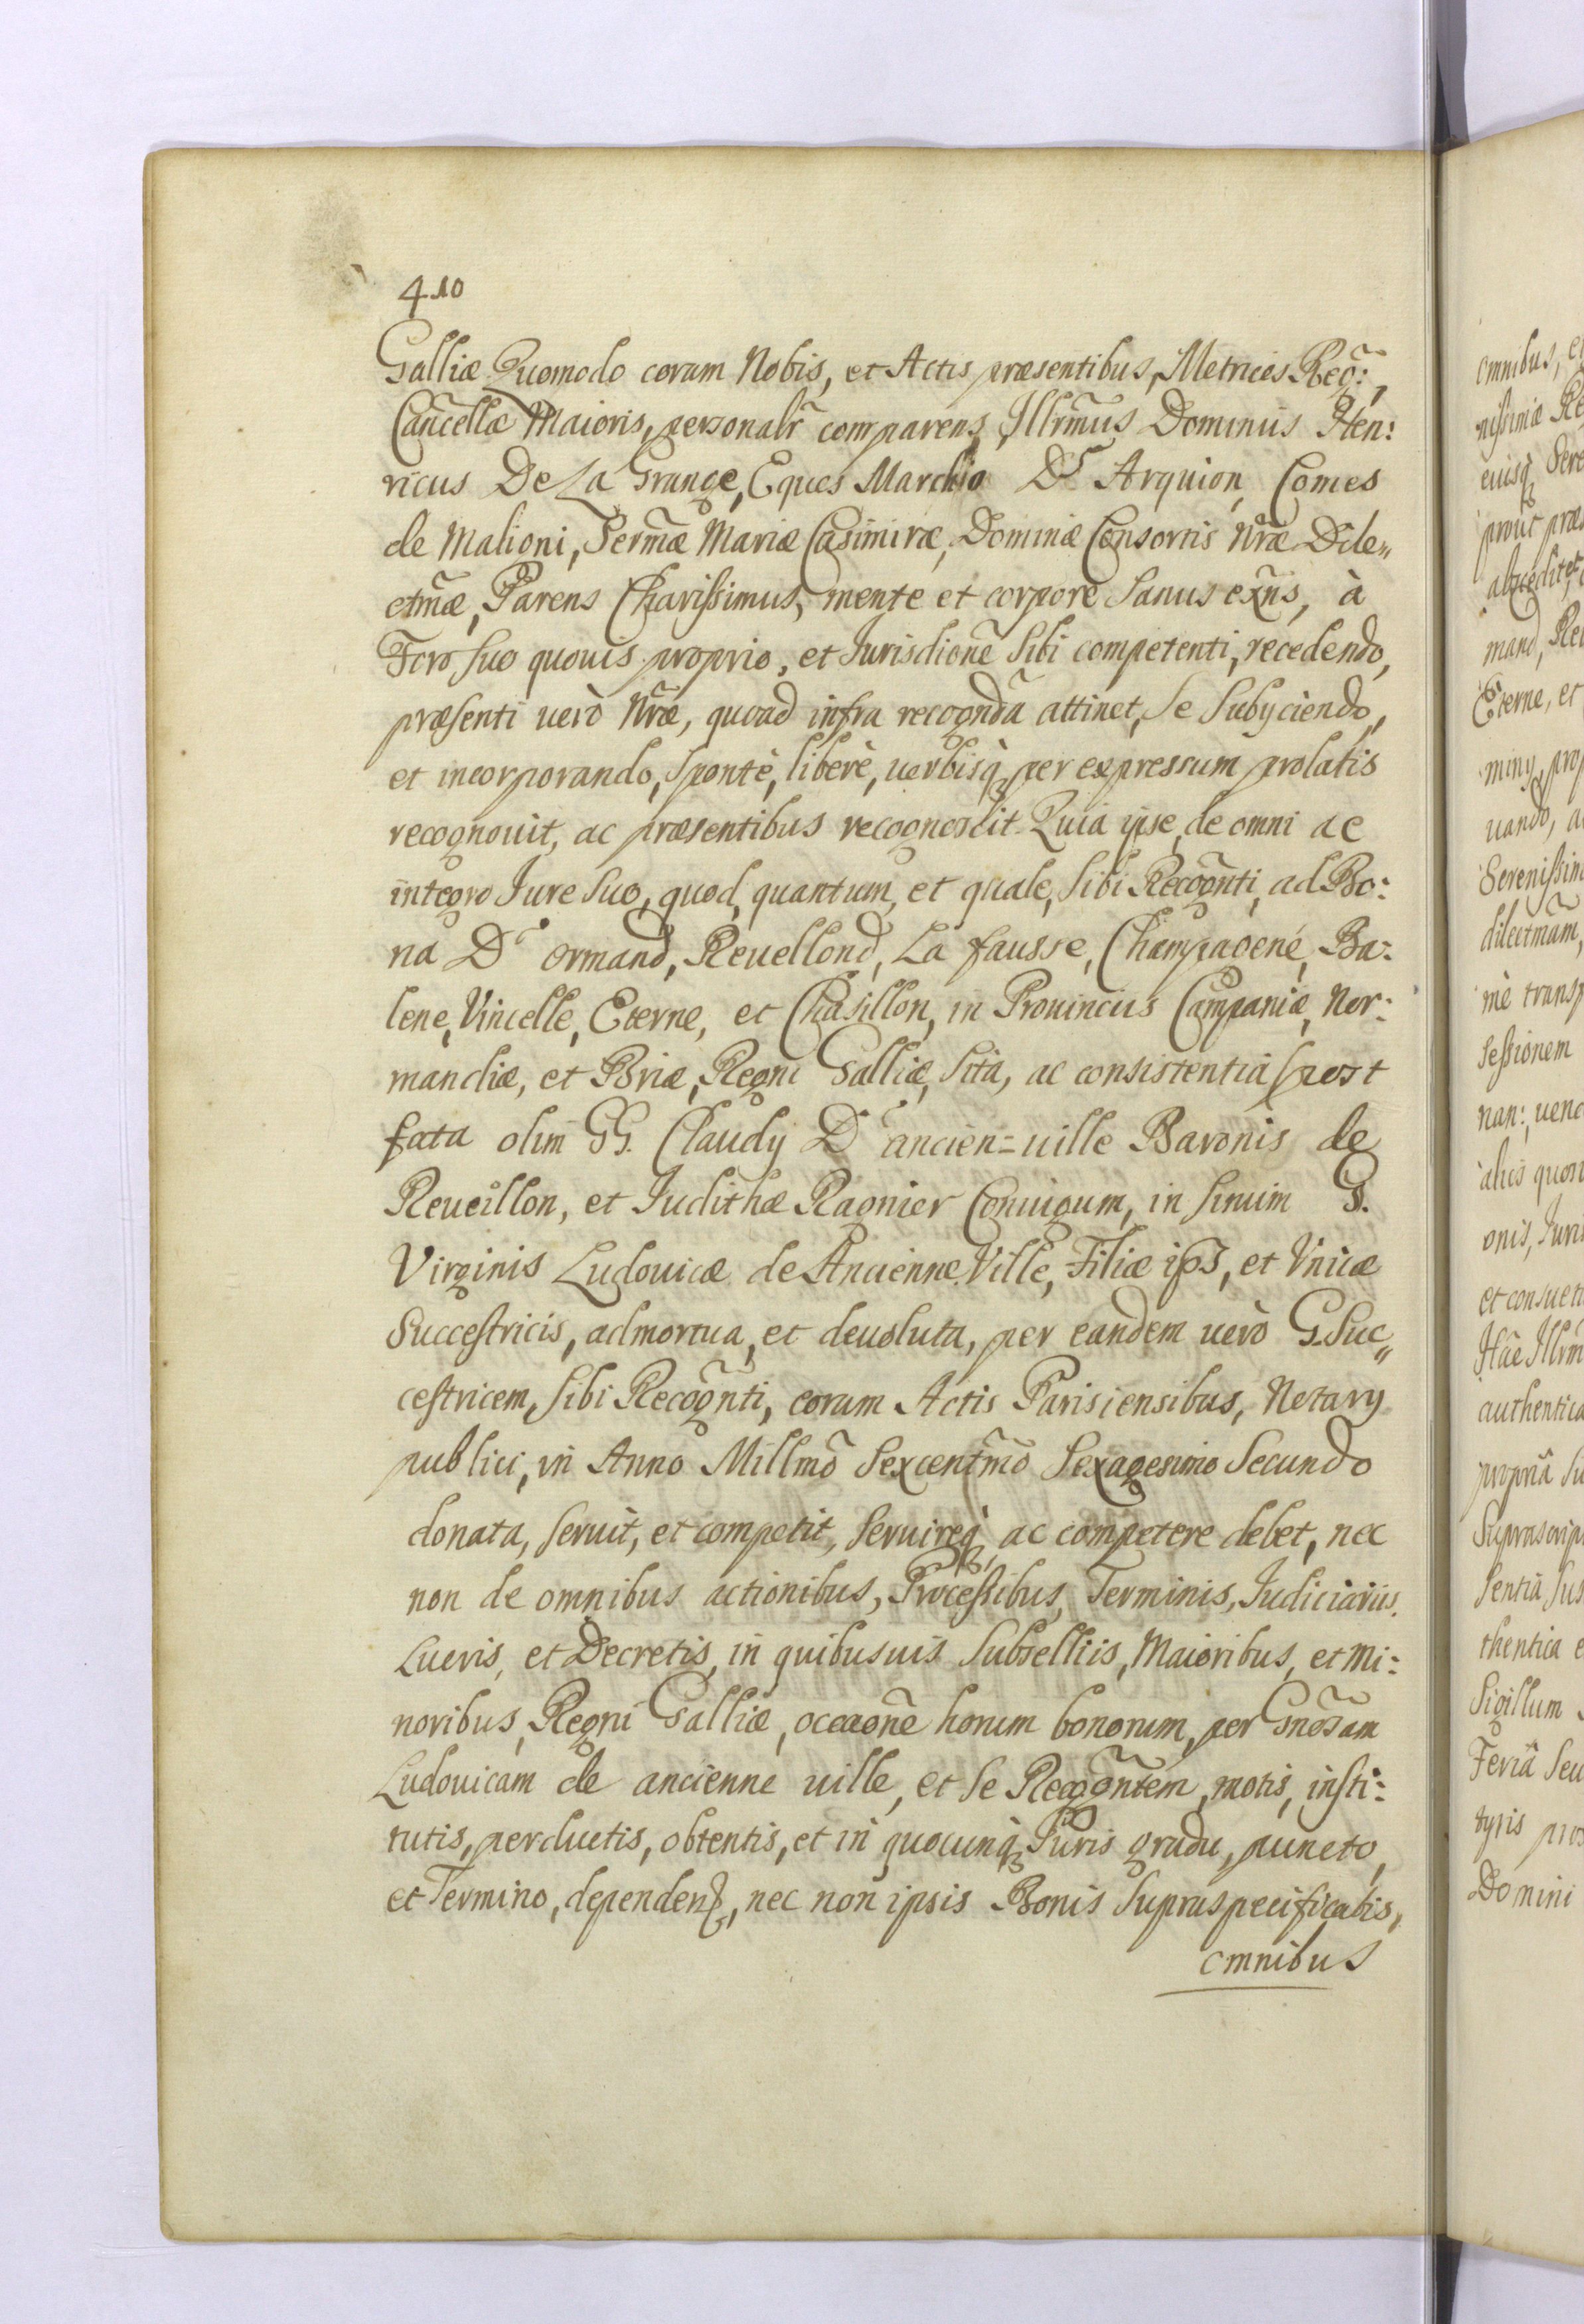 410
Galliæ Quomodo coram Nobis, et Actis præsentibus, Metrices Reg̃:,
Cañcellæ Maioris, personalr̃ comparens, Illrm̃us Dominus Hen:
ricus De La Grange, Eques Marchio Dʳ Arquion, Comes
de Malioni, Serm̃æ Mariæ Casimiræ, Dominæ Consortis Nr̃æ Dile„
ctm̃æ, Parens Charissimus, mente et corpore Sanus exñs, à
Foro suo quouis proprio, et Jurisdioñe sibi competenti, recedendo,
præsenti uerò Nr̃æ, quoad infra recognd̃a attinet, se subyciendo,
et incorporando, spontè, liberè, uerbisq̃ per expressum prolatis
recognouit, ac præsentibus recognoscit. Quia ipse, de omni ac
integro Jure suo, quod, quantum, et quale, sibi Recog̃nti, ad Bo:
na D' ormand, Reuellond, La fausse, Champagené, Ba:
lene, Vincelle, Eterne, et Chasillon, in Prouinciis Campaniæ, Nor:
mandiæ, et Briæ, Regni Galliæ, sita, ac consistentia post
fata olim GG. Claudy D' ancien=uille Baronis de
Reueillon, et Judithæ Ragnier Coniugum, in sinum G.
Virginis Ludouicæ de Ancienne Ville, Filiæ ips, et Vnicæ
Successtricis, admortua, et deuoluta, per eandem uerò G. Suc„
cestricem, sibi Recog̃nti, coram Actis Parisiensibus, Notary
publici, in Anno Millm̃o Sexcentm̃o Sexagesimo Secundo
donata, seruit, et competit, seruireq̃, ac competere debet, nec
non de omnibus actionibus, Processibus, Terminis, Judiciariis.
Lucris, et Decretis, in quibusuis Subselliis, Maioribus, et Mi:
noribus, Regni Galliæ, occaoñe horum bonorum, per Gnos̃am
Ludouicam de ancienne uille, et se Recog̃ntem, motis, insti:
tutis, perductis, obtentis, et in quocunq̃ Juris gradu, puncto,
et Termino, dependen, nec non ipsis Bonis supraspecificatis,
omnibus